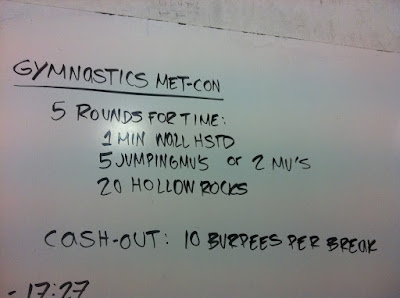 GYMNASTICS MET-CON
5 ROUNDS FOR TIME:
1 MIN WALL HSTD
5 JUMPING MU'S or 2 MU'S
20 HOLLOW ROCKS
CASH-OUT: 10 BURPEES PER BREAK
- 17:27